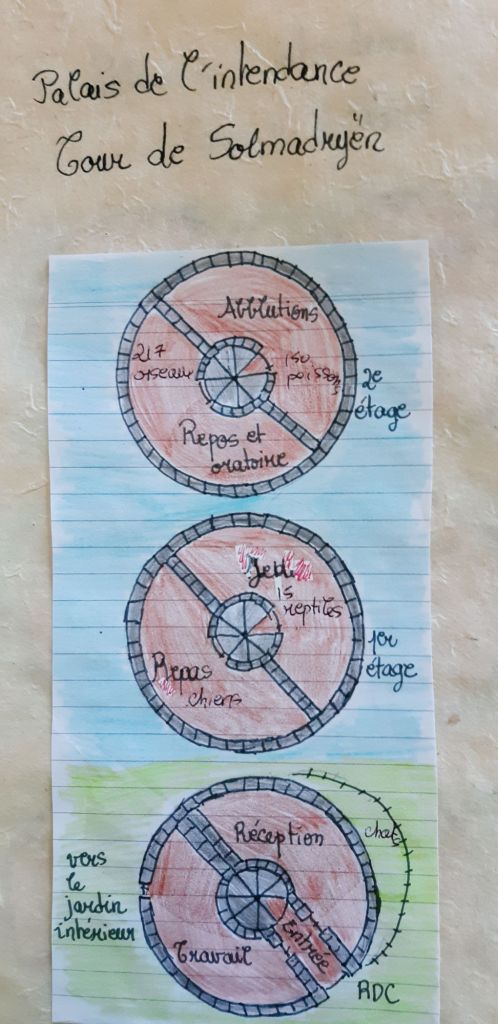 Palais de l'intendance
Tour de Solmadryën
Abblutions
217
oiseaux
150
poissons
2e
étage
Repos et
oratoire
15
reptiles
1er
étage
Repas
chiens
Réception
chats
vers
le
jardin
intérieur
Entrée
Travail
RDC